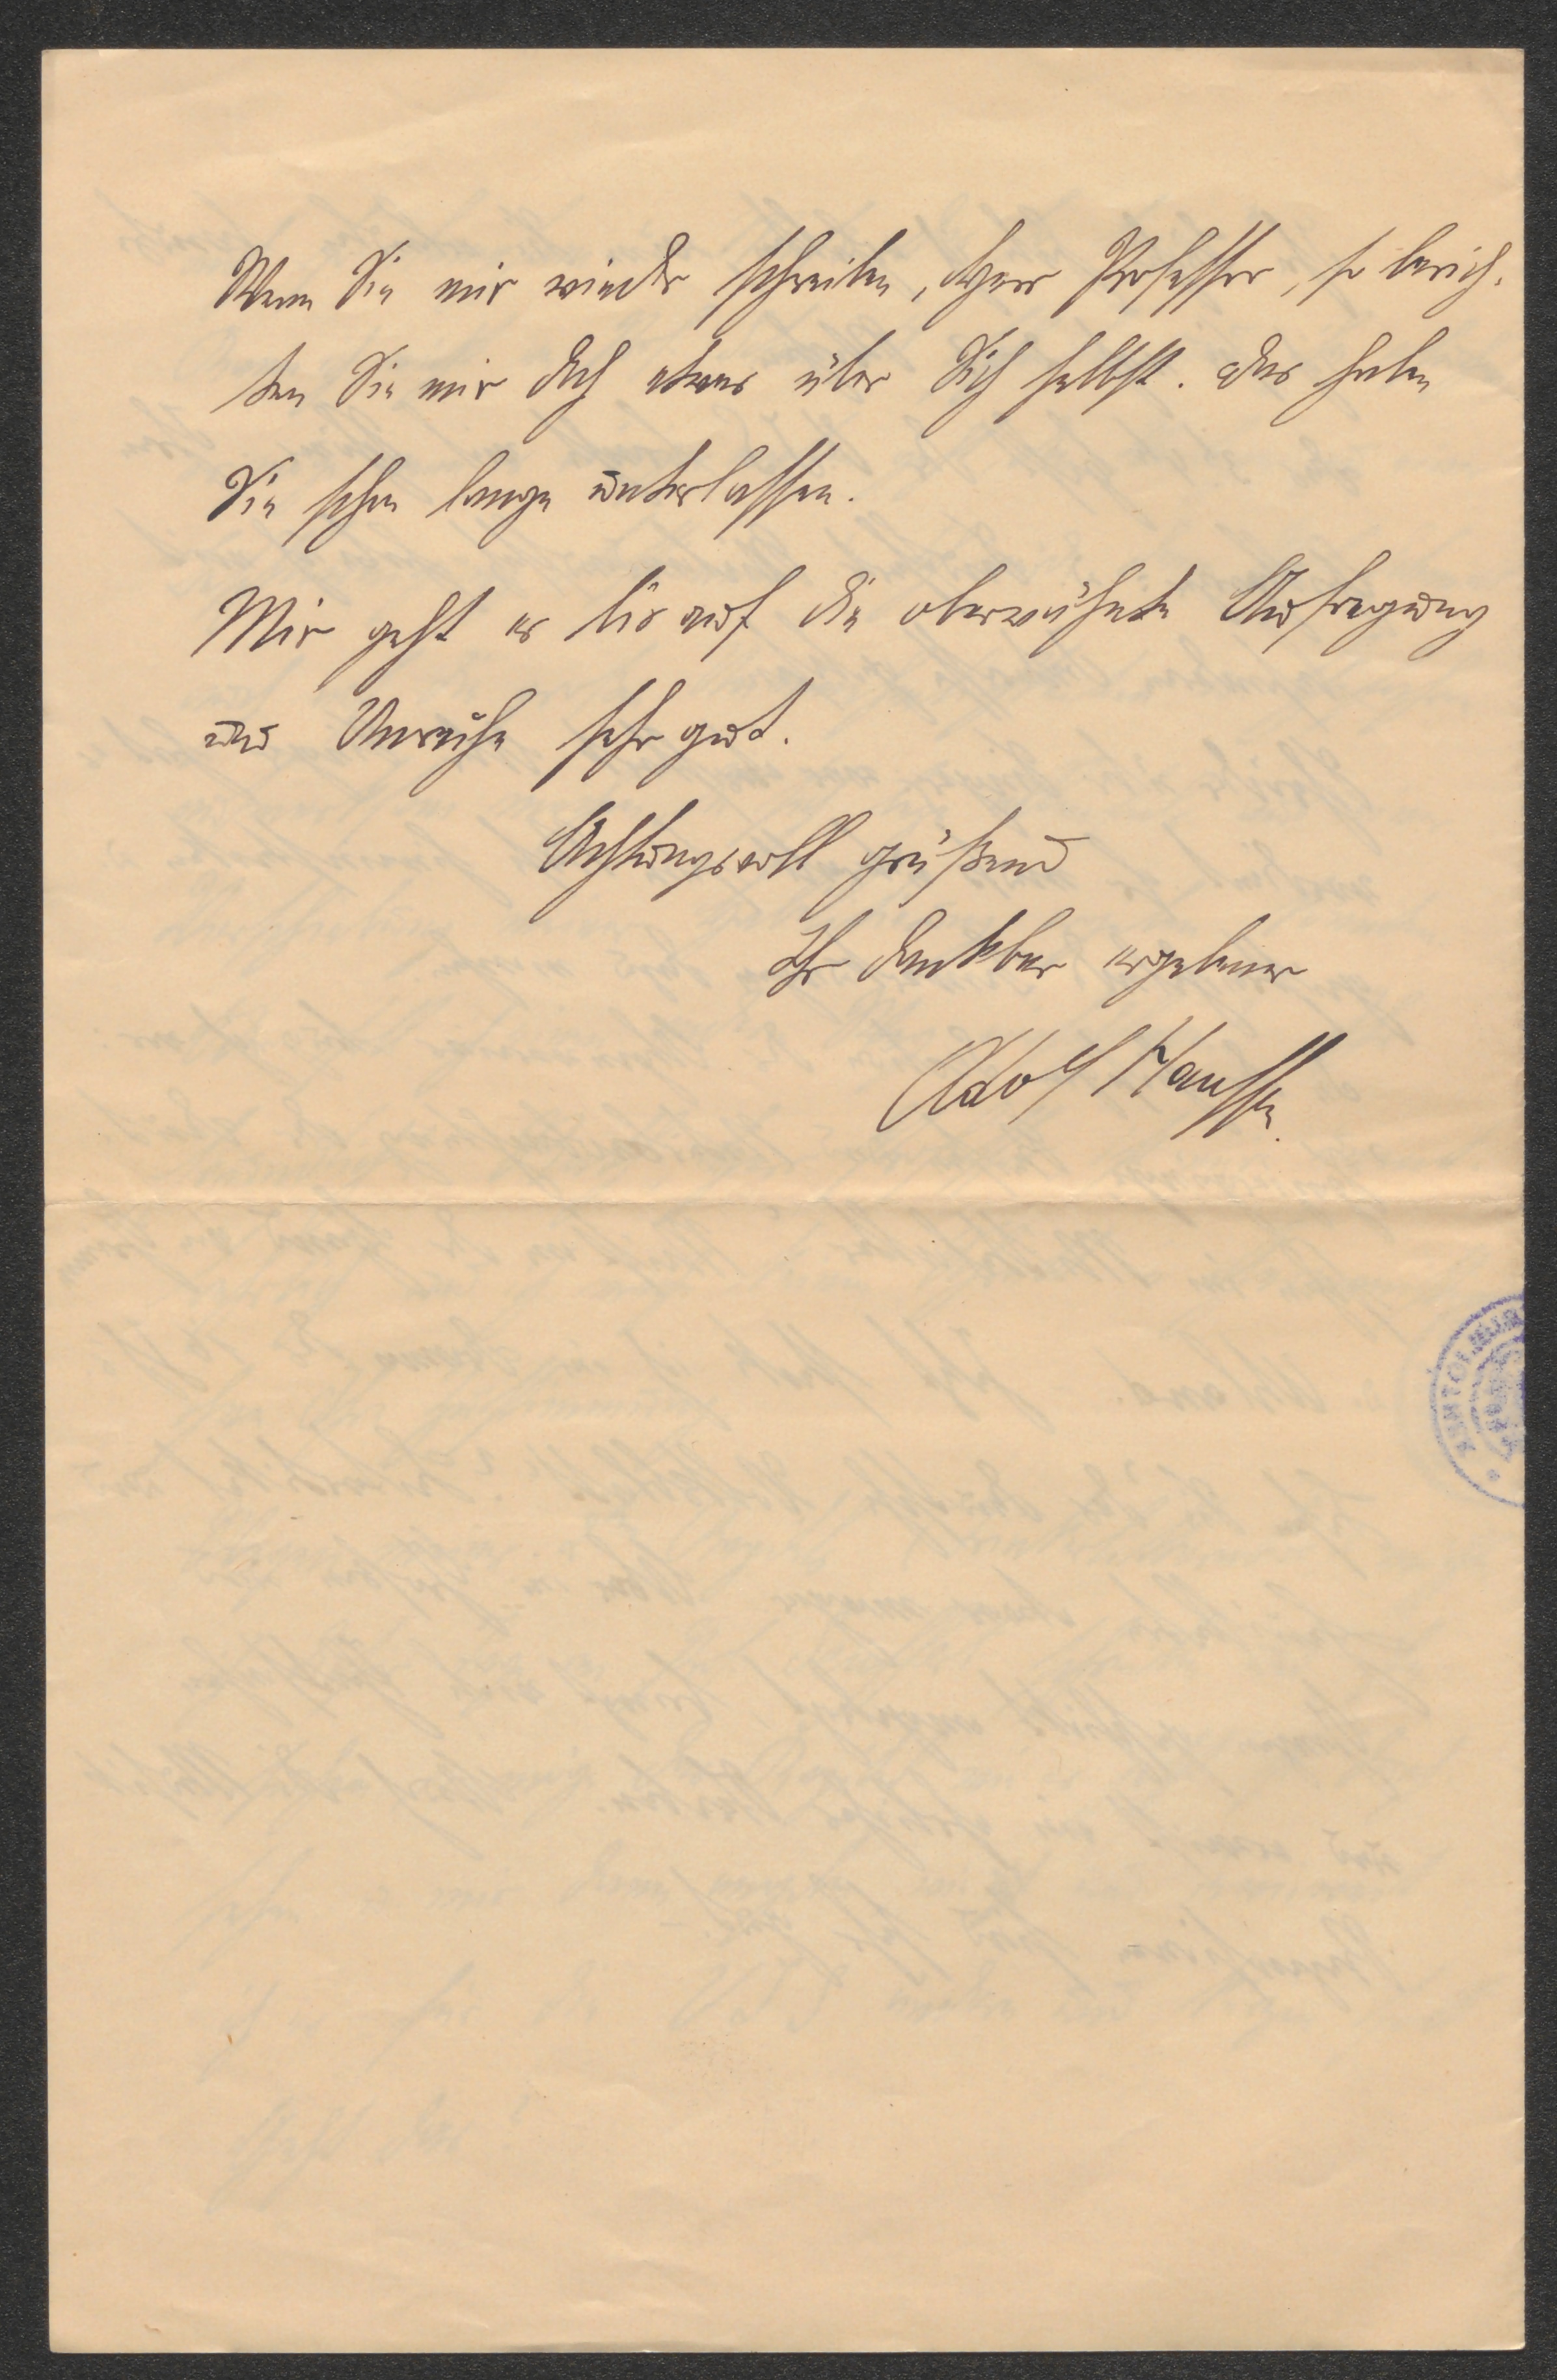 Wenn Sie mir wieder schreiben, Herr Professor, so berich-
ten Sie mir doch etwas über Sich selbst. Das haben
Sie schon lange unterlassen.
Mir geht es bis auf die oberwähnte Aufregung
und Unruhe sehr gut.
Achtungsvoll grüßend
Ihr dankbar ergebener
Adolf Hauffen.